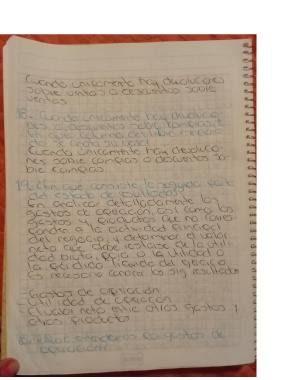 Cuando únicamente hay devoluciones
sobre ventas o descuentos sobre
ventas
18.- Cuando únicamente hay devolucio-
nes o descuentos sobre compras,
en columna del
se
Cuando únicamente hay devolucio-
nes sobre compras o descuentos so-
bre compras.
19. ¿En qué consiste la segunda parte
del estado de resultados?
En analizar detalladamente los
gastos de operación, así como los
gastos y productos que no corres-
ponden a la actividad principal
del negocio, y determinar el valor
neto que debe restarse de la utili-
dad bruta, para la utilidad o
la pérdida líquida del ejercicio.
Es necesario conocer los sig resultados
- Gastos de operación
- Utilidad de operación
- El valor neto entre otros gastos y
otros productos
20. ¿Qué entendemos por gastos de
operación?